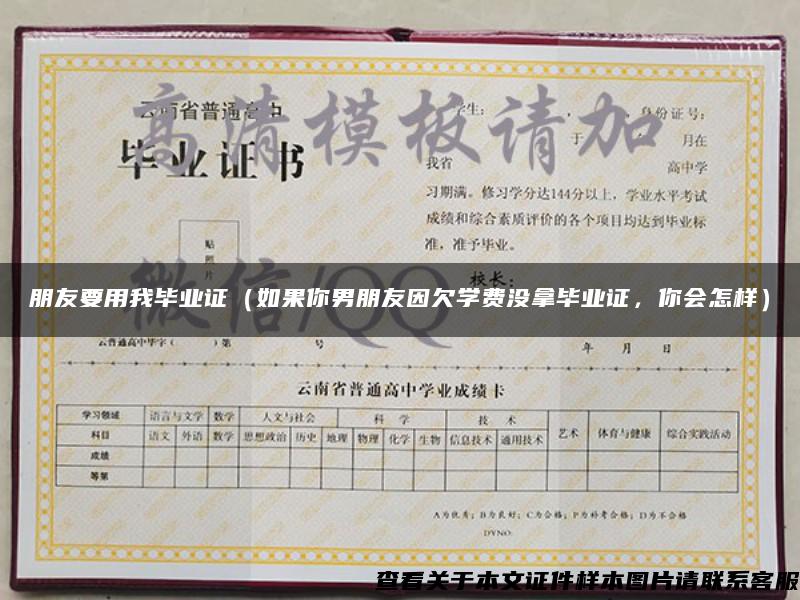 云南省普通高中
毕业证书
高清模板请加
微信/QQ
贴
照
片
学生：
，身份证号：
于
月在
我省
高中学
习期满。修习学分达144分以上，学业水平考试
成绩和综合素质评价的各个项目均达到毕业标
准，准予毕业。
校长：
朋友要用我毕业证（如果你男朋友因欠学费没拿毕业证，你会怎样）
云普通高中毕字（ ）第 号
年 月 日
云南省普通高中学业成绩卡
学习领域 语言与文学 数学 人文与社会 科 学 技 术 艺术 体育与健康 综合实践活动
科目 语文 外语 数学 思想政治 历史 地理 物理 化学 生物 信息技术 通用技术
成绩
等第
A为优秀；B为良好；C为合格；P为补考合格；D为不合格
DYNO:
查看关于本文证件样本图片请联系客服